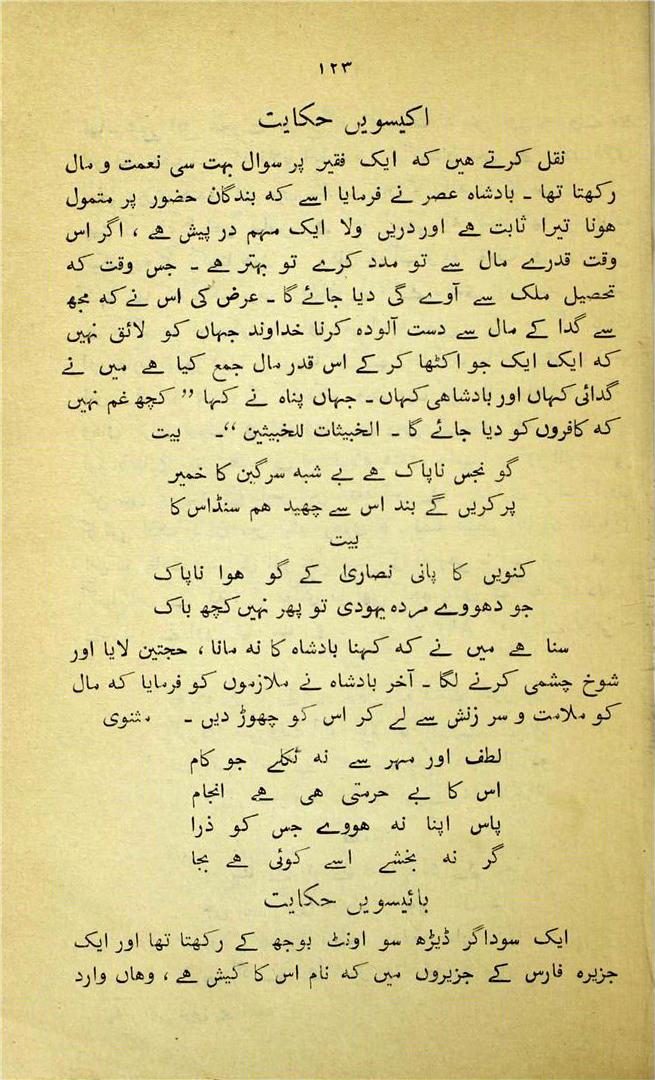 ۱۲۳
اکیسویں حکایت
نقل کرتے ہیں کہ ایک فقیر پر سوال بہت سی نعمت و مال
رکھتا تھا ـ بادشاہ عصر نے فرمایا اسے کہ بندگان حضور پر متمول
ہونا تیرا ثابت ہے اور دریں ولا ایک مہم در پیش ہے ، اگر اس
وقت قدرے مال سے تو مدد کرے تو بہتر ہے ـ جس وقت کہ
تحصیل ملک سے آوے گی دیا جائے گا ـ عرض کی اس نے کہ مجھ
سے گدا کے مال سے دست آلودہ کرنا خداوند جہاں کو لائق نہیں
کہ ایک ایک جو اکٹھا کر کے اس قدر مال جمع کیا ہے میں نے
گدائی کہاں اور بادشاہی کہاں ـ جہاں پناہ نے کہا ’’ کچھ غم نہیں
کہ کافروں کو دیا جائے گا ـ الخبیثات للخبیثین ‘‘ـ بیت
گو نجس ناپاک ہے بے شبہ سرگین کا خمیر
پر کریں گے بند اس سے چھید ہم سنڈاس کا
بیت
کنویں کا پانی نصاریٰ کے گو ہوا ناپاک
جو دھووے مردہ یہودی تو پھر نہیں کچھ باک
سنا ہے میں نے کہ کہنا بادشاہ کا نہ مانا ، حجتین لایا اور
شوخ چشمی کرنے لگا ـ آخر بادشاہ نے ملازموں کو فرمایا کہ مال
کو ملامت و سر زنش سے لے کر اس کو چھوڑ دیں ـ مثنوی
لطف اور مہر سے نہ نکلے جو کام
اس کا بے حرمتی ہی ہے انجام
پاس اپنا نہ ہووے جس کو ذرا
گر نہ بخشے اسے کوئی ہے بجا
بائیسویں حکایت
ایک سوداگر ڈیڑھ سو اونٹ بوجھ کے رکھتا تھا اور ایک
جزیرہ فارس کے جزیروں میں کہ نام اس کا کیش ہے ، وہاں وارد